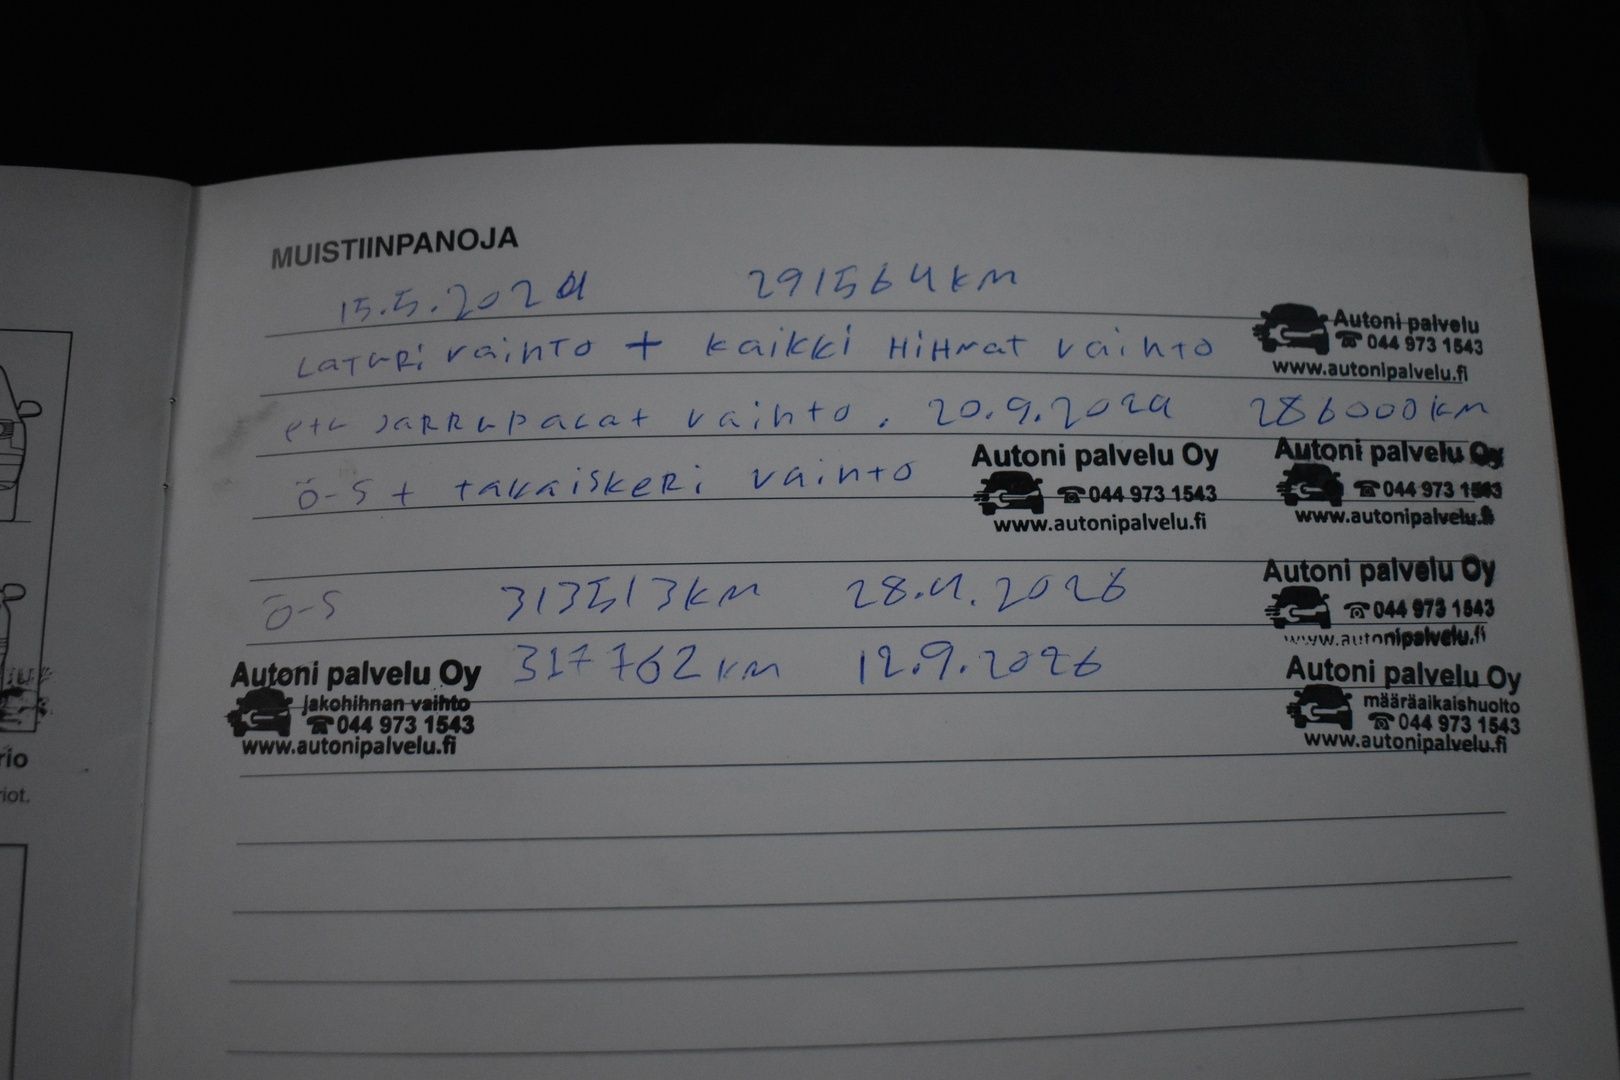 MUISTIINPANOJA
15.5.2024 291564 km
Laturi vaihto + kaikki Hihnat vaihto
Autoni palvelu
☎ 044 973 1543
www.autonipalvelu.fi
etu Jarrupalat vaihto. 20.9.2024 286000 km
ö-S + takaiskeri vaihto
Autoni palvelu Oy
☎ 044 973 1543
www.autonipalvelu.fi
Autoni palvelu Oy
☎ 044 973 1543
www.autonipalvelu.fi
ö-S 313513 km 28.4.2026
Autoni palvelu Oy
☎ 044 973 1543
www.autonipalvelu.fi
317762 km 12.9.2026
Autoni palvelu Oy
jakohihnan vaihto
☎ 044 973 1543
www.autonipalvelu.fi
Autoni palvelu Oy
määräaikaishuolto
☎ 044 973 1543
www.autonipalvelu.fi
rio
riot.